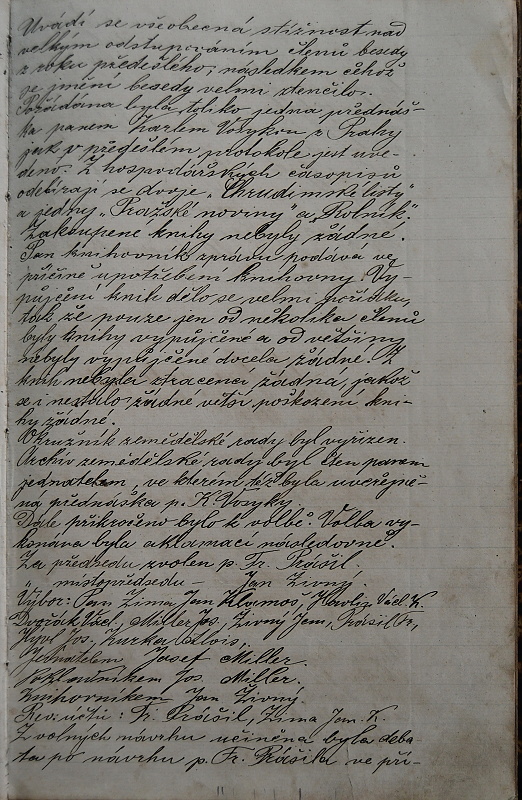 Uvádí se všeobecná stížnost nad
velkým odstupováním členů besedy
z roku předešlého, následkem čehož
se jmění besedy velmi ztenčilo.
Pořádána byla toliko jedna přednáš-
ka panem Karlem Vosykou z Prahy
jak v předešlém protokole jest uve-
deno. Z hospodářských časopisů
odebírají se dvoje „Chrudimské listy"
a jedny „Pražské noviny" a „Rolník".
Zakoupené knihy nebyly žádné.
Pan knihovník zprávu podává ve
příčině upotřebení knihovny. Vy-
půjčení knih dělo se velmi pořídku,
tak že pouze jen od několika členů
byly knihy vypůjčené a od většiny
nebyly vypůjčené docela žádné. Z
knih nebyla ztracena žádná, jakož
se i nestalo žádné větší poškození kni-
hy žádné.
Okružník zemědělské rady byl vyřízen.
Archiv zemědělské rady byl čten panem
jednatelem, ve kterém též byla uveřejně-
ná přednáška p. K. Vosyky.
Dále přikročeno bylo k volbě. Volba vy-
konána byla aklamací následovně.
Za předsedu zvolen p. Fr. Prášil.
„ místopředsedu – Jan Živný.
Výbor: Pan Zima Jan Klamoš, Havliz Václ. K.
Dvořák Václ., Miller Jos. Živný Jan, Prášil Fr.,
Jos. Zurka Alois,
Jednatelem Josef Miller.
Pokladníkem Jos. Miller.
Knihovníkem Jan Živný.
Rev. účtů: Fr. Prášil, Zima Jan. K.
Z volných návrhu učiněna byla deba-
ta po návrhu p. Fr. Prášila ve pří-